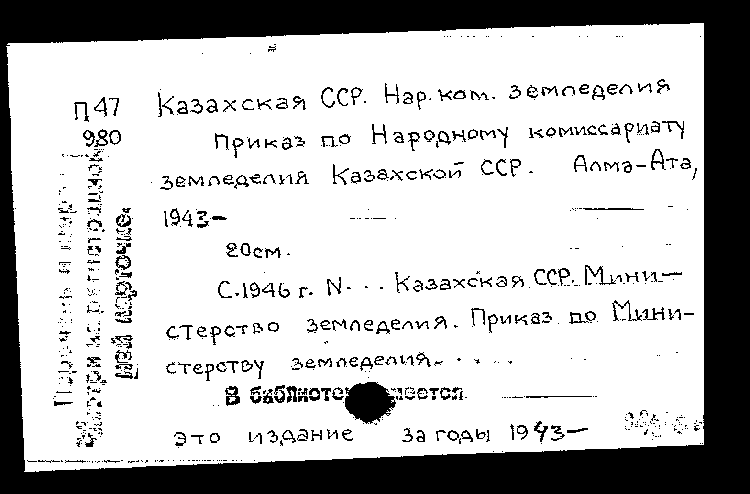 П47
980
Казахская ССР. Нар. ком. земледелия
Приказ по Народному комиссариату
земледелия Казахской ССР. Алма-Ата,
1943—
20см.
С.1946 г. N... Казахская ССР. Мини-
стерство земледелия. Приказ по Мини-
стерству земледелия. . . .
В библиоте имеется
это издание за годы 1943—
ной карточке.